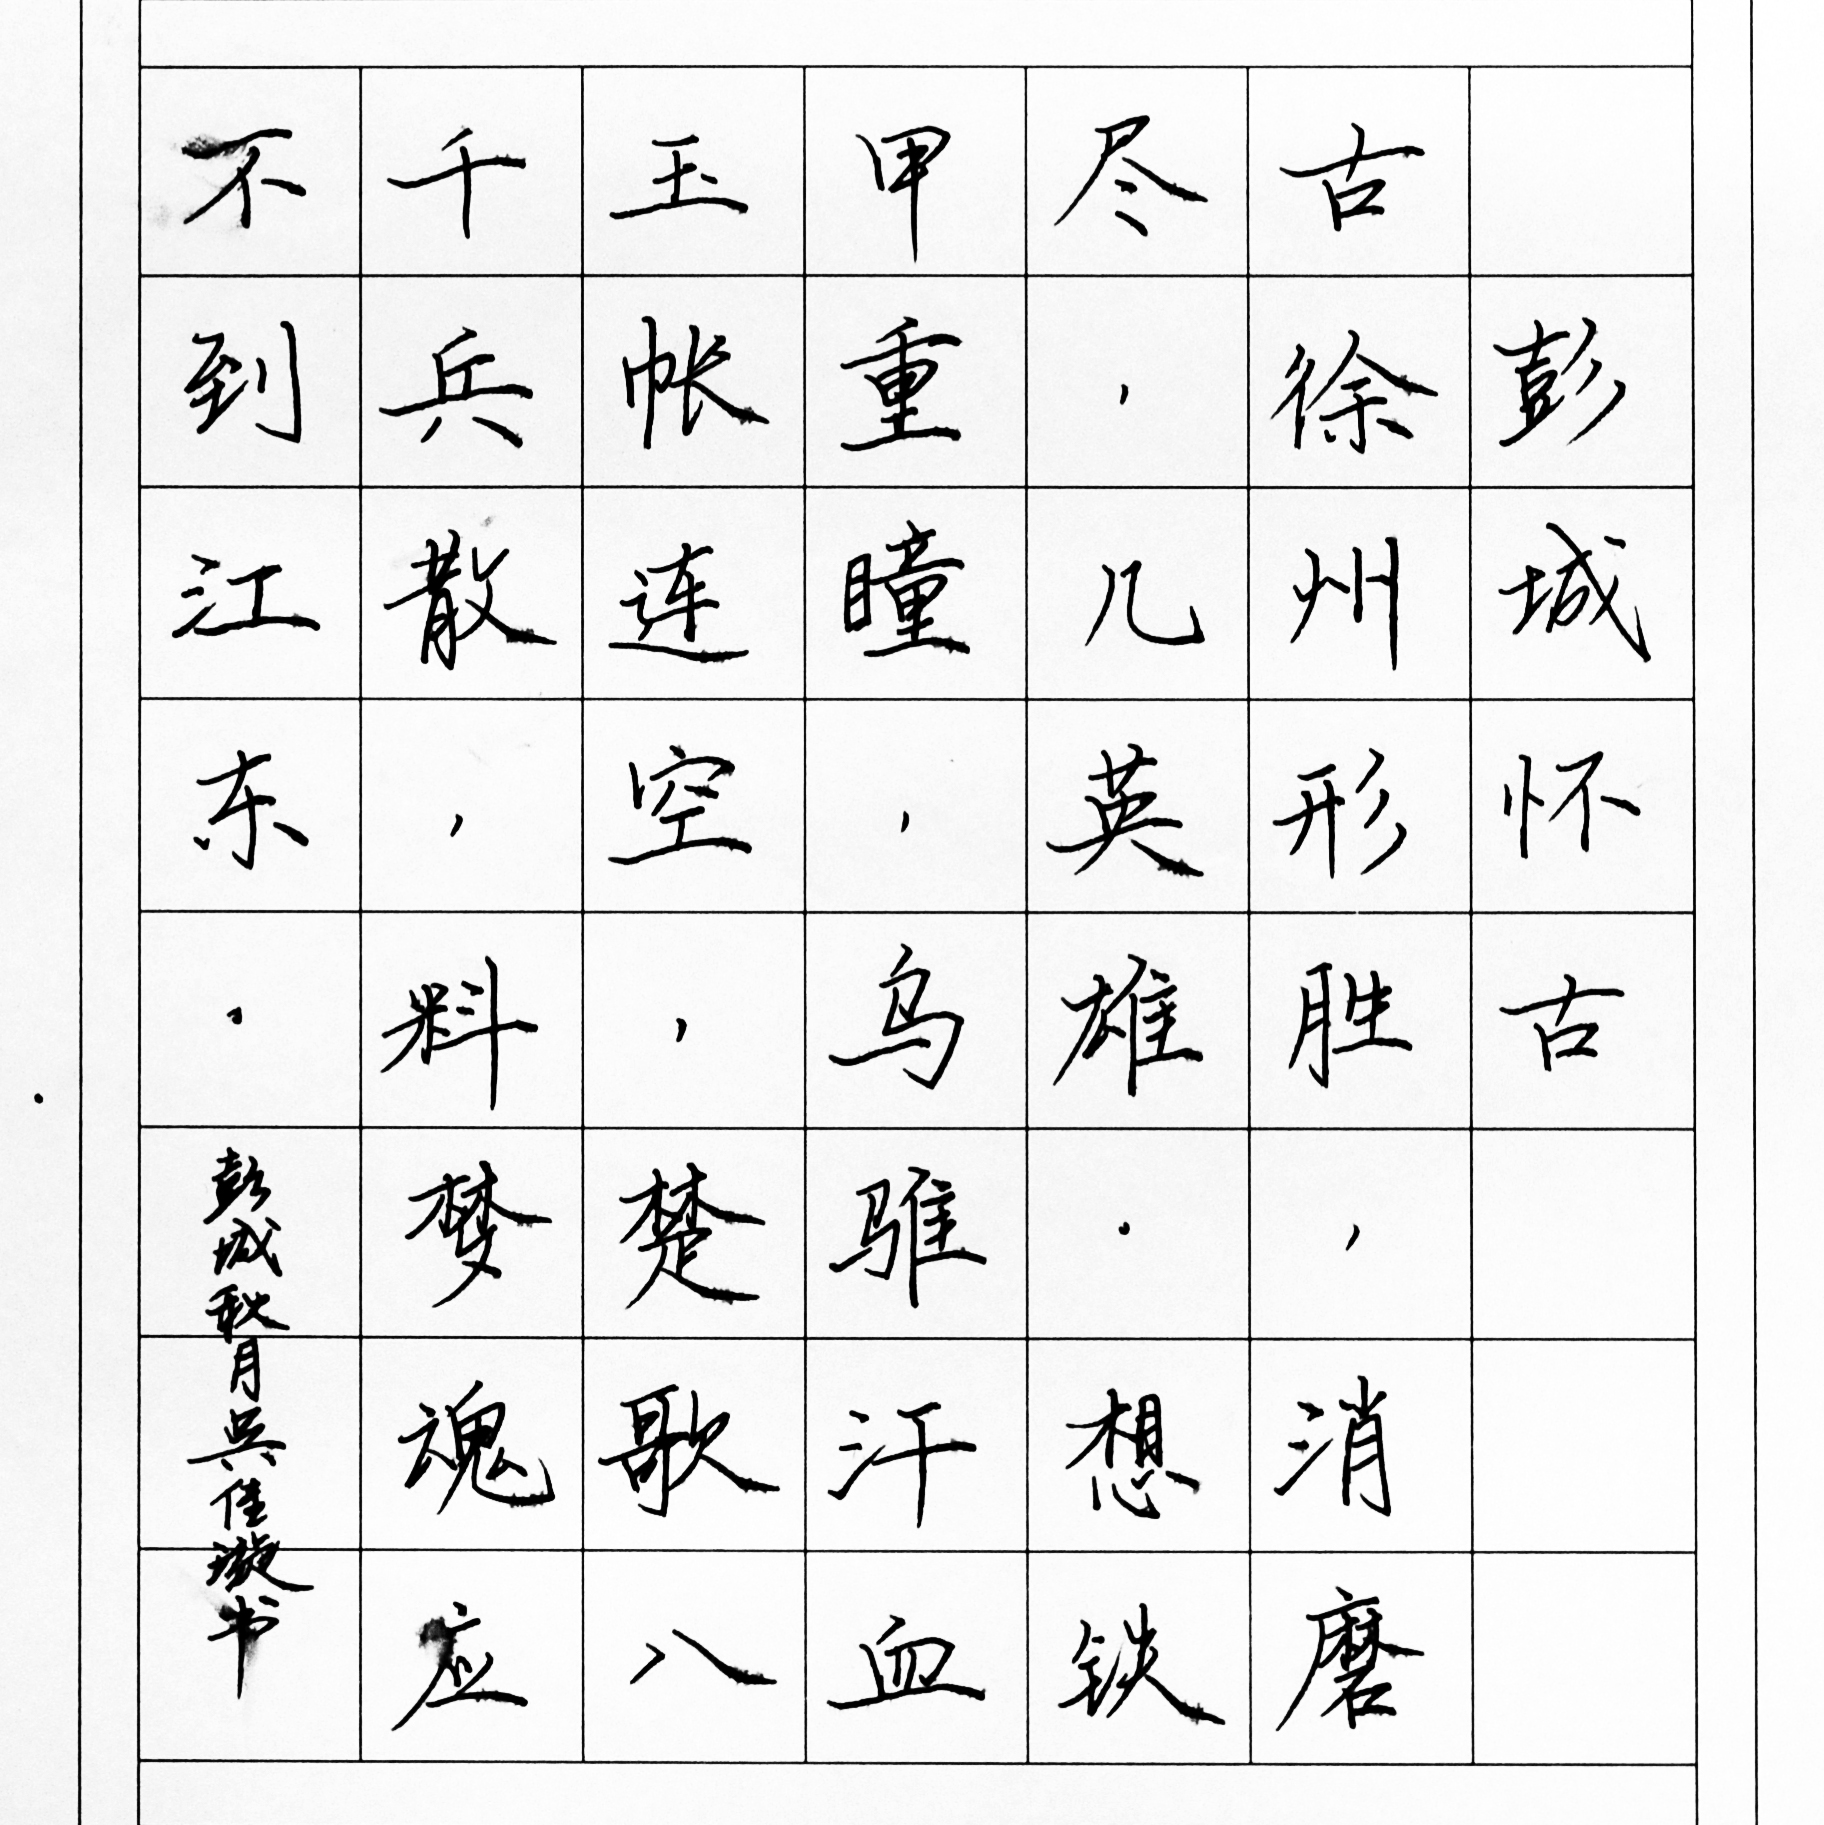 彭城怀古
古徐州形胜，消磨
尽，几英雄。想铁
甲重瞳，乌骓汗血
玉帐连空，楚歌八
千兵散，料梦魂应
不到江东。
彭城秋月吴佳璇书